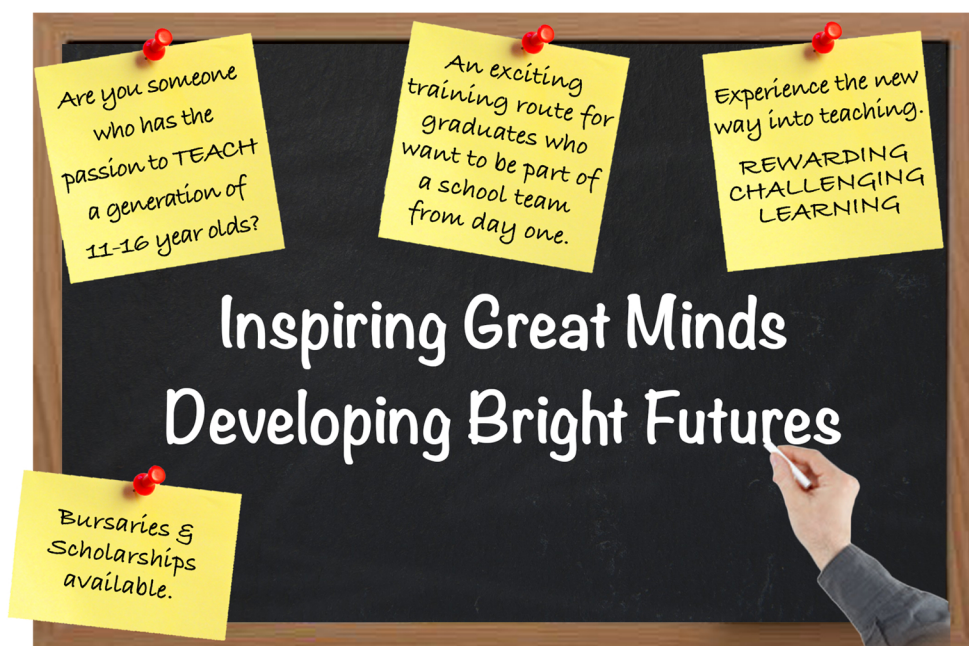 Are you someone
who has the
passion to TEACH
a generation of
11-16 year olds?
An exciting
training route for
graduates who
want to be part of
a school team
from day one.
Experience the new
way into teaching.
REWARDING
CHALLENGING
LEARNING
Inspiring Great Minds
Developing Bright Futures
Bursaries &
Scholarships
available.